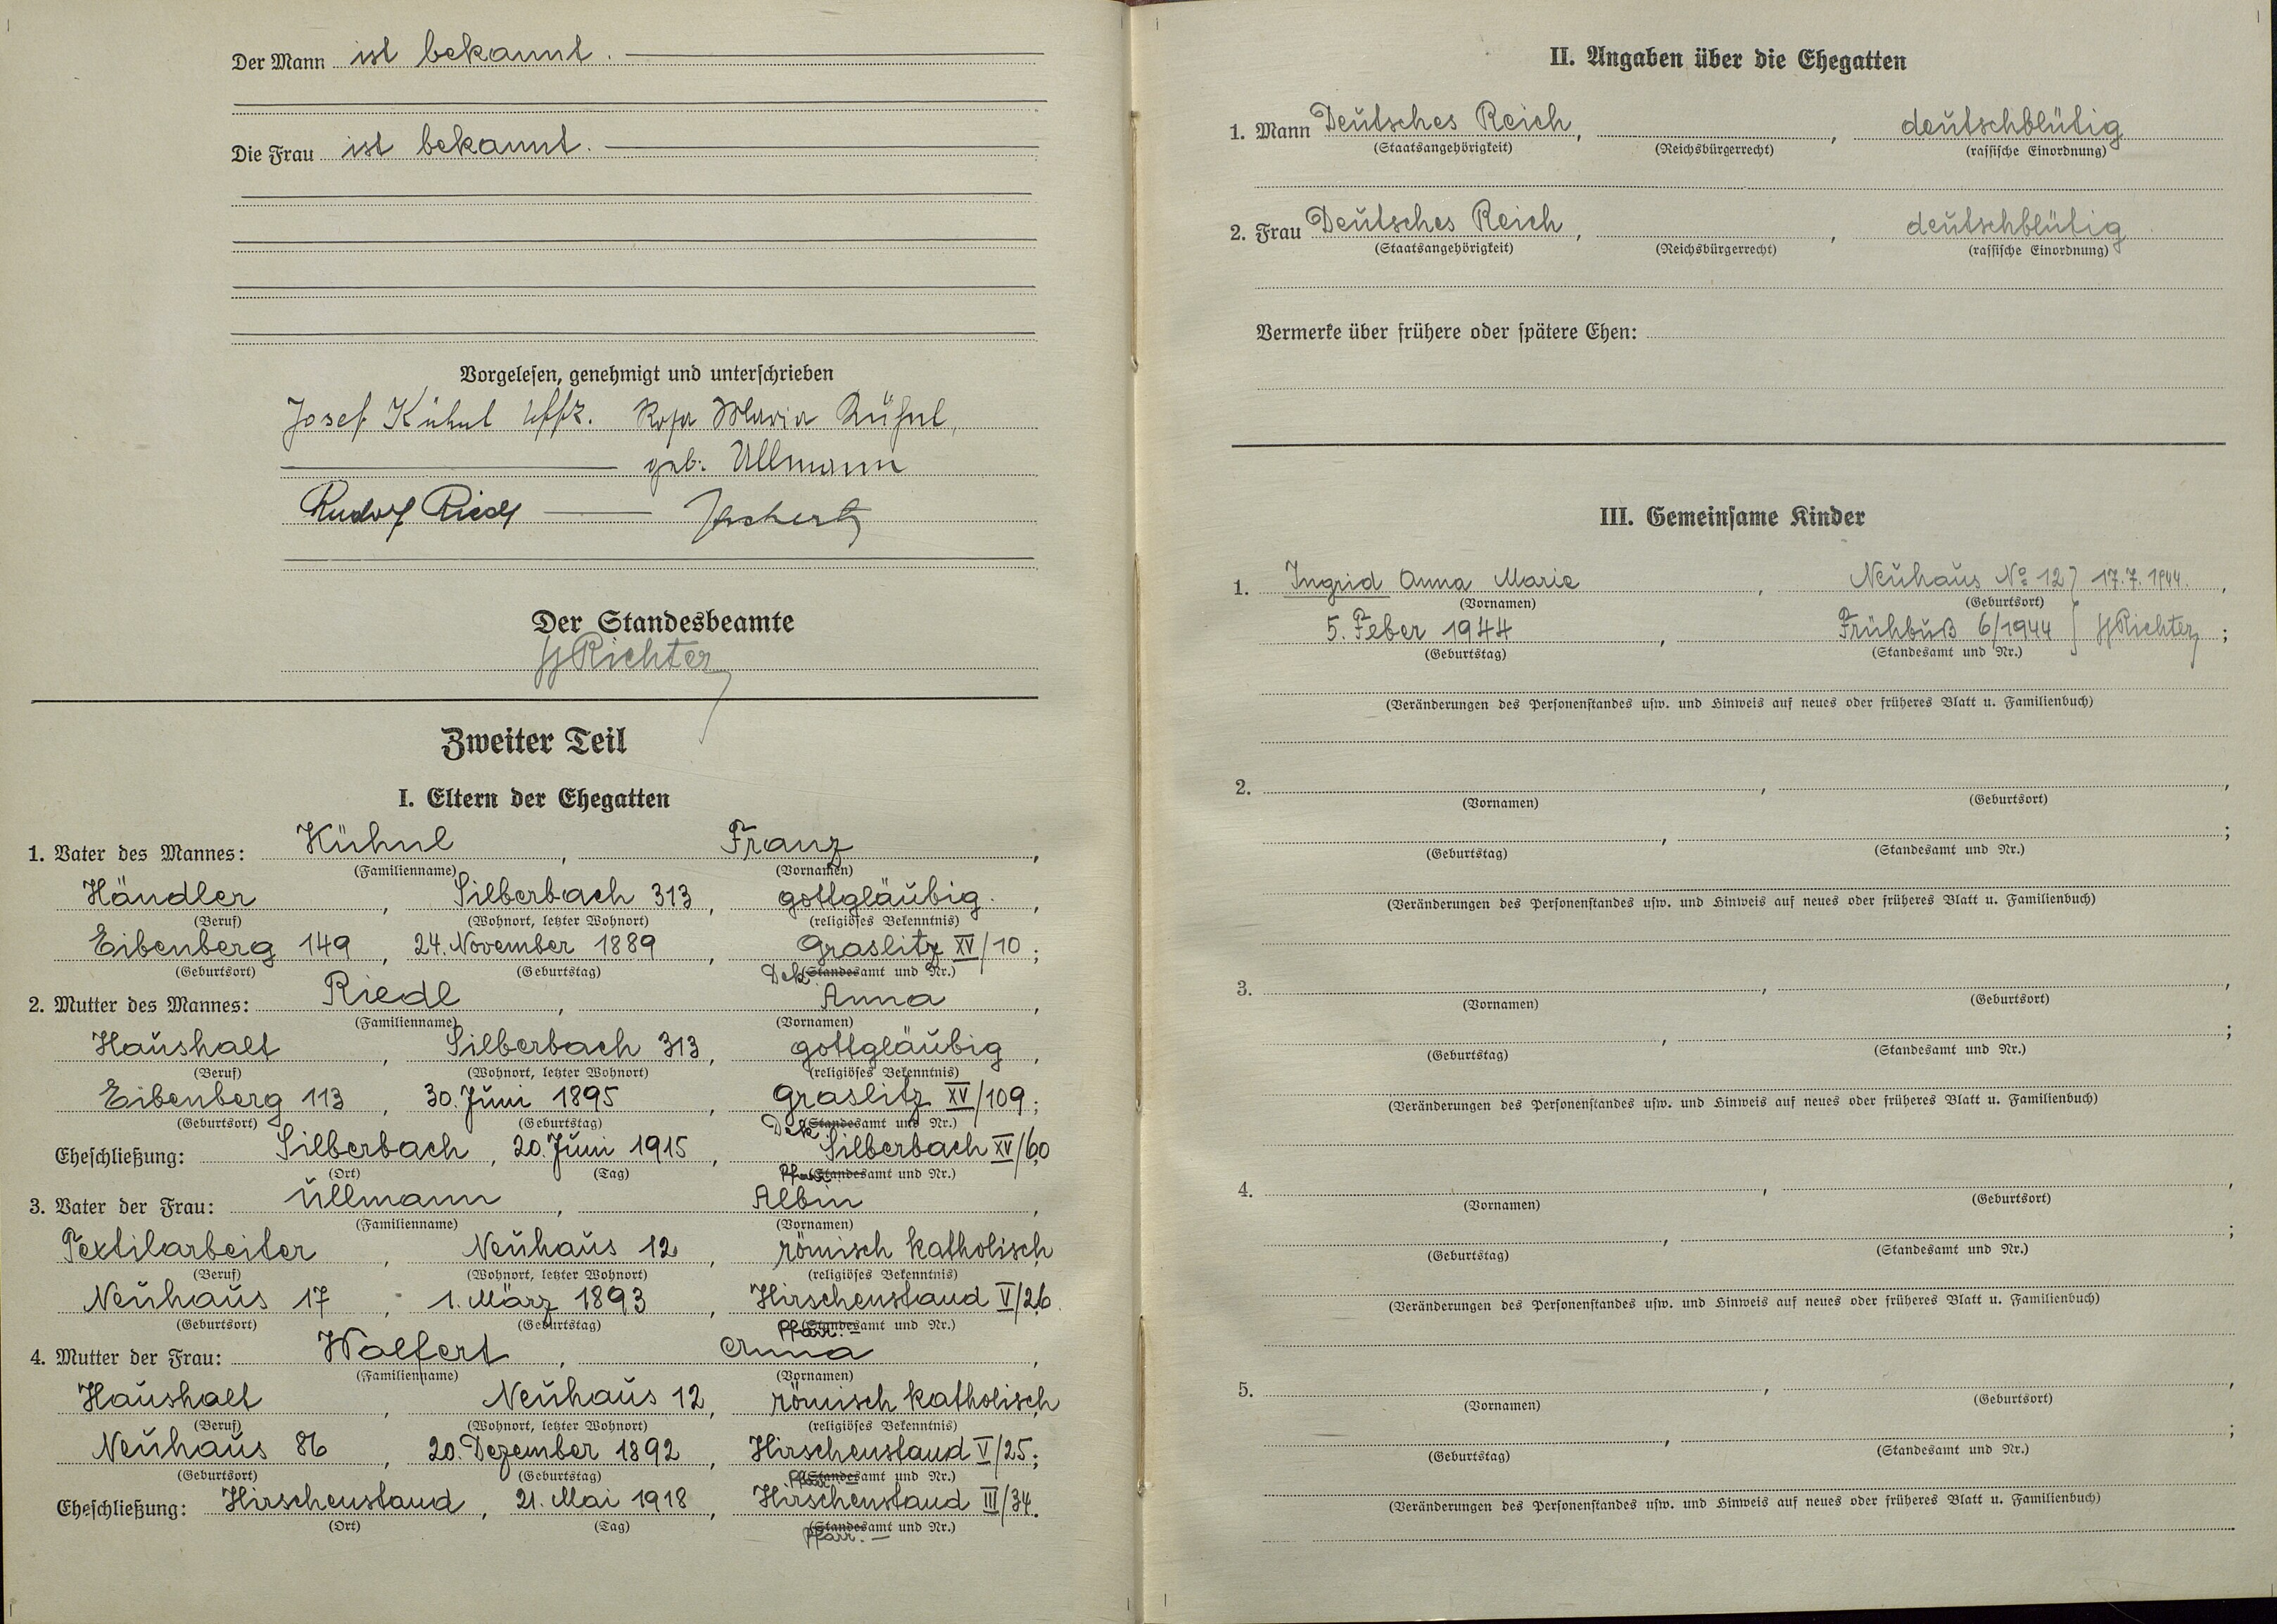 Der Mann ist bekannt.
Die Frau ist bekannt.
Vorgelesen, genehmigt und unterschrieben
Josef Kühnl Uffz. Rosa Maria Kühnl,
geb. Ullmann
Rudolf Riedl
Der Standesbeamte
Richter
Zweiter Teil
I. Eltern der Ehegatten
1. Vater des Mannes: Kühnl, Franz,
(Familienname) (Vornamen)
Händler, Silberbach 313, gottgläubig,
(Beruf) (Wohnort, letzter Wohnort) (religiöses Bekenntnis)
Eibenberg 149, 24. November 1889, Graslitz XV/10;
(Geburtsort) (Geburtstag) Dek. (Standesamt und Nr.)
2. Mutter des Mannes: Riedl, Anna,
(Familienname) (Vornamen)
Haushalt, Silberbach 313, gottgläubig,
(Beruf) (Wohnort, letzter Wohnort) (religiöses Bekenntnis)
Eibenberg 113, 30. Juni 1895, Graslitz XV/109;
(Geburtsort) (Geburtstag) Dek. (Standesamt und Nr.)
Eheschließung: Silberbach, 20. Juni 1915, Silberbach XV/60
(Ort) (Tag) Pfarr (Standesamt und Nr.)
3. Vater der Frau: Ullmann, Albin,
(Familienname) (Vornamen)
Textilarbeiter, Neuhaus 12, römisch katholisch,
(Beruf) (Wohnort, letzter Wohnort) (religiöses Bekenntnis)
Neuhaus 17, 1. März 1893, Hirschenstand V/26.
(Geburtsort) (Geburtstag) Pfarr. (Standesamt und Nr.)
4. Mutter der Frau: Wolfert, Anna,
(Familienname) (Vornamen)
Haushalt, Neuhaus 12, römisch katholisch,
(Beruf) (Wohnort, letzter Wohnort) (religiöses Bekenntnis)
Neuhaus 86, 20. Dezember 1892, Hirschenstand V/25;
(Geburtsort) (Geburtstag) Pfarr (Standesamt und Nr.)
Eheschließung: Hirschenstand, 21. Mai 1918, Hirschenstand III/34.
(Ort) (Tag) (Standesamt und Nr.)
Pfarr.
II. Angaben über die Ehegatten
1. Mann Deutsches Reich, , deutschblütig
(Staatsangehörigkeit) (Reichsbürgerrecht) (rassische Einordnung)
2. Frau Deutsches Reich, , deutschblütig
(Staatsangehörigkeit) (Reichsbürgerrecht) (rassische Einordnung)
Vermerke über frühere oder spätere Ehen:
III. Gemeinsame Kinder
1. Ingrid Anna Marie, Neuhaus No 12 17.7.1944.,
(Vornamen) (Geburtsort)
5. Feber 1944, Frühbuß 6/1944 Richter;
(Geburtstag) (Standesamt und Nr.)
(Veränderungen des Personenstandes usw. und Hinweis auf neues oder früheres Blatt u. Familienbuch)
2. , ,
(Vornamen) (Geburtsort)
, ;
(Geburtstag) (Standesamt und Nr.)
(Veränderungen des Personenstandes usw. und Hinweis auf neues oder früheres Blatt u. Familienbuch)
3. , ,
(Vornamen) (Geburtsort)
, ;
(Geburtstag) (Standesamt und Nr.)
(Veränderungen des Personenstandes usw. und Hinweis auf neues oder früheres Blatt u. Familienbuch)
4. , ,
(Vornamen) (Geburtsort)
, ;
(Geburtstag) (Standesamt und Nr.)
(Veränderungen des Personenstandes usw. und Hinweis auf neues oder früheres Blatt u. Familienbuch)
5. , ,
(Vornamen) (Geburtsort)
, ;
(Geburtstag) (Standesamt und Nr.)
(Veränderungen des Personenstandes usw. und Hinweis auf neues oder früheres Blatt u. Familienbuch)